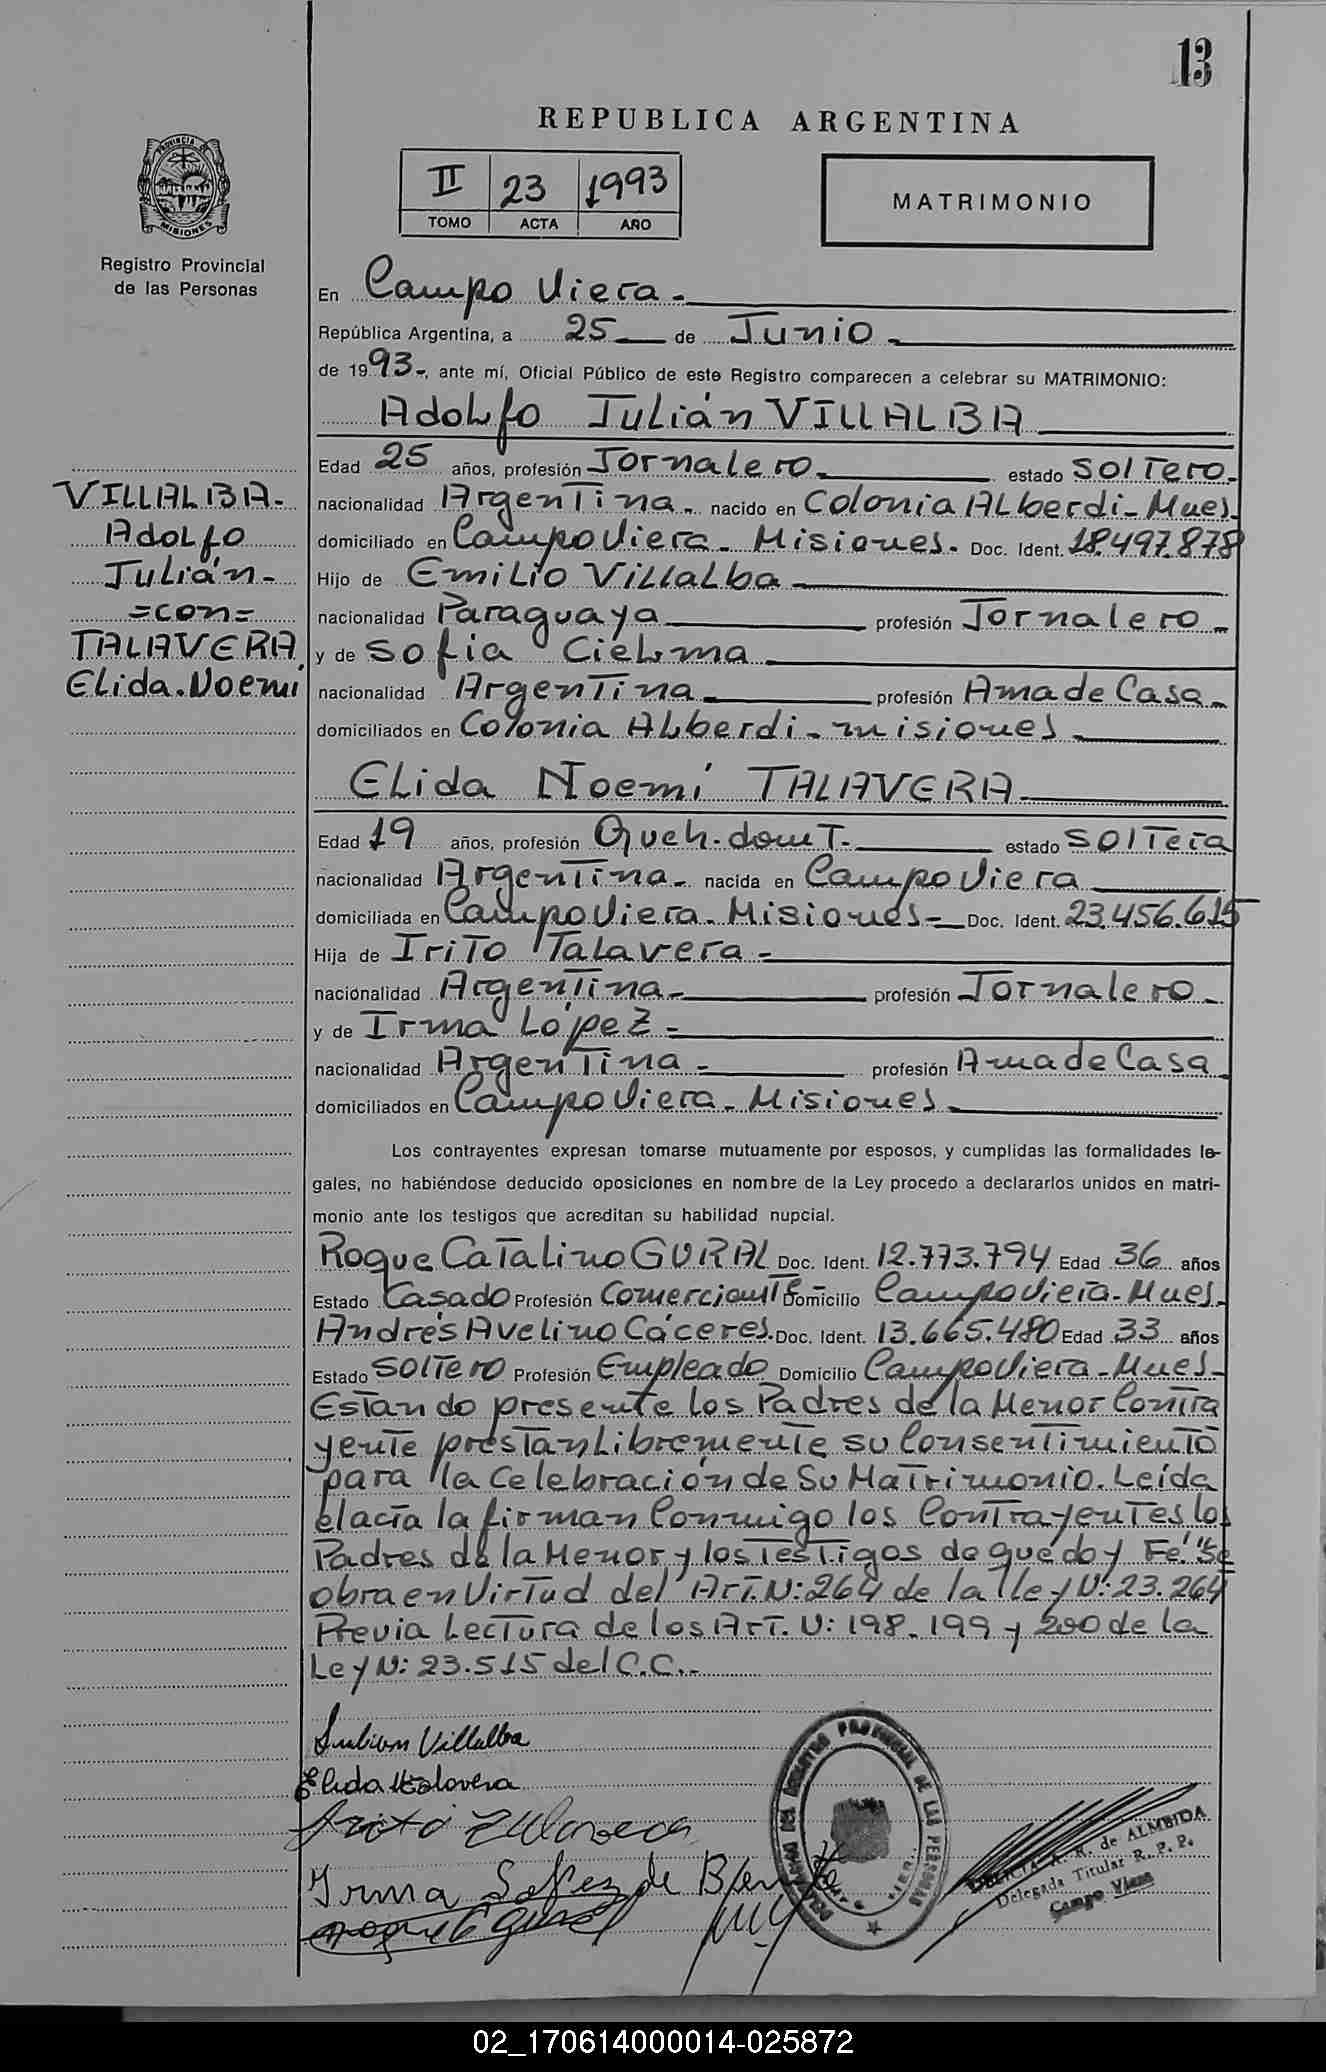 13
REPUBLICA ARGENTINA
PROVINCIA DE
MISIONES
II 23 1993
TOMO ACTA AÑO
MATRIMONIO
Registro Provincial
de las Personas
En Campo Viera.-
República Argentina, a 25 de Junio.-
de 1993-, ante mí, Oficial Público de este Registro comparecen a celebrar su MATRIMONIO:
Adolfo Julián VILLALBA
Edad 25 años, profesión Jornalero.- estado Soltero.-
VILLALBA.-
Adolfo
Julián.-
=con=
TALAVERA,
Elida.Noemí
nacionalidad Argentina.- nacido en Colonia Alberdi-Mnes.
domiciliado en Campo Viera- Misiones. Doc. Ident. 18.497.878
Hijo de Emilio Villalba
nacionalidad Paraguaya profesión Jornalero.-
y de Sofia Cielma
nacionalidad Argentina profesión Ama de Casa.-
domiciliados en Colonia Alberdi-misiones.
Elida Noemí TALAVERA
Edad 19 años, profesión Queh.domt.- estado soltera
nacionalidad Argentina.- nacida en Campo Viera
domiciliada en Campo Viera-Misiones- Doc. Ident. 23.456.615
Hija de Irito Talavera-
nacionalidad Argentina.- profesión Jornalero.-
y de Irma López-
nacionalidad Argentina- profesión Ama de Casa
domiciliados en Campo Viera- Misiones.
Los contrayentes expresan tomarse mutuamente por esposos, y cumplidas las formalidades le-
gales, no habiéndose deducido oposiciones en nombre de la Ley procedo a declararlos unidos en matri-
monio ante los testigos que acreditan su habilidad nupcial.
Roque Catalino GURAL Doc. Ident. 12.773.794 Edad 36 años
Estado Casado Profesión Comerciante Domicilio Campo Viera-Mnes.
Andrés Avelino Cáceres. Doc. Ident. 13.665.480 Edad 33 años
Estado Soltero Profesión Empleado Domicilio Campo Viera-Mnes-
Estando presente los Padres de la Menor Contra
yente prestan Libremente su Consentimiento
para la Celebración de Su Matrimonio. Leída
el acta la firman Conmigo los Contrayentes los
Padres de la Menor y los Testigos de que doy Fé."Se
obra en Virtud del Art.N:264 de la lley N: 23.264
Previa Lectura de los Art. N: 198. 199 y 200 de la
Ley N: 23.515 del C.C.-
Julian Villalba
Elida Talavera
Irito Talavera
Irma Lopez de
DELICIA A. R. de ALMEIDA
Delegada Titular R. P. P.
Campo Viera
REGISTRO PROVINCIAL DE LAS PERSONAS
02_170614000014-025872